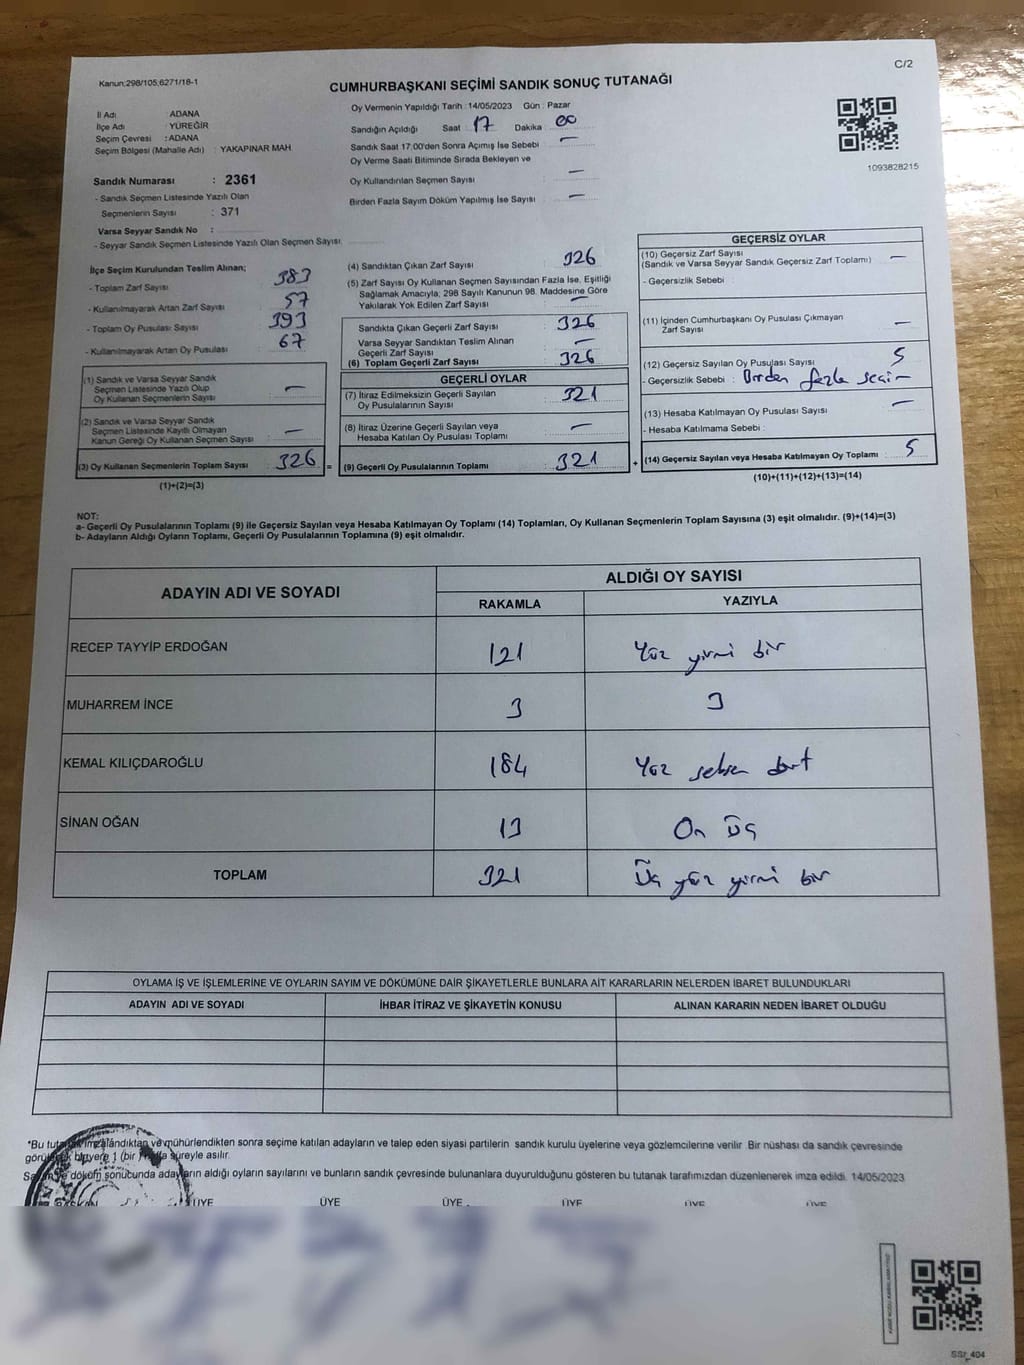 C/2
Kanun:298/105;6271/18-1
CUMHURBAŞKANI SEÇİMİ SANDIK SONUÇ TUTANAĞI
İl Adı : ADANA
İlçe Adı : YÜREĞİR
Seçim Çevresi : ADANA
Seçim Bölgesi (Mahalle Adı) : YAKAPINAR MAH
Sandık Numarası : 2361
- Sandık Seçmen Listesinde Yazılı Olan
Seçmenlerin Sayısı : 371
Varsa Seyyar Sandık No :
- Seyyar Sandık Listesinde Yazılı Olan Seçmen Sayısı
Oy Vermenin Yapıldığı Tarih : 14/05/2023 Gün : Pazar
Sandığın Açıldığı Saat : 17 Dakika : 00
Sandık Saat 17.00'den Sonra Açımış İse Sebebi : —
Oy Verme Saati Bitiminde Sırada Bekleyen ve
Oy Kullandırılan Seçmen Sayısı : —
Birden Fazla Sayım Döküm Yapılmış İse Sayısı : —
1093828215
İlçe Seçim Kurulundan Teslim Alınan;
- Toplam Zarf Sayısı : 383
- Kullanılmayarak Artan Zarf Sayısı : 57
- Toplam Oy Pusulası Sayısı : 393
- Kullanılmayarak Artan Oy Pusulası : 67
(1) Sandık ve Varsa Seyyar Sandık
Seçmen Listesinde Yazılı Olup
Oy Kullanan Seçmenlerin Sayısı : —
(2) Sandık ve Varsa Seyyar Sandık
Seçmen Listesinde Kayıtlı Olmayan
Kanun Gereği Oy Kullanan Seçmen Sayısı : —
(3) Oy Kullanan Seçmenlerin Toplam Sayısı : 326 =
(1)+(2)=(3)
(4) Sandıktan Çıkan Zarf Sayısı : 326
(5) Zarf Sayısı Oy Kullanan Seçmen Sayısından Fazla İse, Eşitliği
Sağlamak Amacıyla, 298 Sayılı Kanunun 98. Maddesine Göre
Yakılarak Yok Edilen Zarf Sayısı : —
Sandıkta Çıkan Geçerli Zarf Sayısı : 326
Varsa Seyyar Sandıktan Teslim Alınan
Geçerli Zarf Sayısı : —
(6) Toplam Geçerli Zarf Sayısı : 326
GEÇERLİ OYLAR
(7) İtiraz Edilmeksizin Geçerli Sayılan
Oy Pusulalarının Sayısı : 321
(8) İtiraz Üzerine Geçerli Sayılan veya
Hesaba Katılan Oy Pusulası Toplamı : —
(9) Geçerli Oy Pusulalarının Toplamı : 321 +
GEÇERSİZ OYLAR
(10) Geçersiz Zarf Sayısı
(Sandık ve Varsa Seyyar Sandık Geçersiz Zarf Toplamı) : —
- Geçersizlik Sebebi
(11) İçinden Cumhurbaşkanı Oy Pusulası Çıkmayan
Zarf Sayısı : —
(12) Geçersiz Sayılan Oy Pusulası Sayısı : 5
- Geçersizlik Sebebi : Birden fazla seçim
(13) Hesaba Katılmayan Oy Pusulası Sayısı : —
- Hesaba Katılmama Sebebi :
(14) Geçersiz Sayılan veya Hesaba Katılmayan Oy Toplamı : 5
(10)+(11)+(12)+(13)=(14)
NOT:
a- Geçerli Oy Pusulalarının Toplamı (9) ile Geçersiz Sayılan veya Hesaba Katılmayan Oy Toplamı (14) Toplamları, Oy Kullanan Seçmenlerin Toplam Sayısına (3) eşit olmalıdır. (9)+(14)=(3)
b- Adayların Aldığı Oyların Toplamı, Geçerli Oy Pusulalarının Toplamına (9) eşit olmalıdır.
ADAYIN ADI VE SOYADI
ALDIĞI OY SAYISI
RAKAMLA YAZIYLA
RECEP TAYYİP ERDOĞAN 121 Yüz yirmi bir
MUHARREM İNCE 3 3
KEMAL KILIÇDAROĞLU 184 Yüz seksen dört
SİNAN OĞAN 13 On üç
TOPLAM 321 Üç yüz yirmi bir
OYLAMA İŞ VE İŞLEMLERİNE VE OYLARIN SAYIM VE DÖKÜMÜNE DAİR ŞİKAYETLERLE BUNLARA AİT KARARLARIN NELERDEN İBARET BULUNDUKLARI
ADAYIN ADI VE SOYADI İHBAR İTİRAZ VE ŞİKAYETİN KONUSU ALINAN KARARIN NEDEN İBARET OLDUĞU
*Bu tutanak imzalandıktan ve mühürlendikten sonra seçime katılan adayların ve talep eden siyasi partilerin sandık kurulu üyelerine veya gözlemcilerine verilir. Bir nüshası da sandık çevresinde
görülecek bir yere 1 (bir) hafta süreyle asılır.
Sayım ve döküm sonucunda adayların aldığı oyların sayılarını ve bunların sandık çevresinde bulunanlara duyurulduğunu gösteren bu tutanak tarafımızdan düzenlenerek imza edildi. 14/05/2023
BAŞKAN ÜYE ÜYE ÜYE ÜYE ÜYE ÜYE
SSI_404